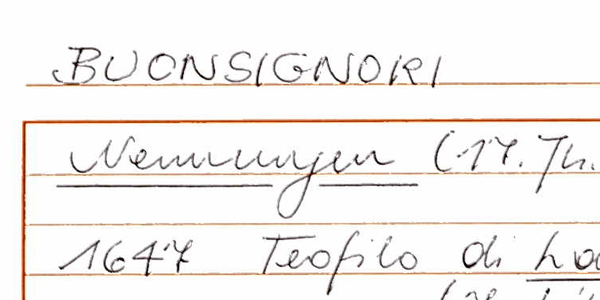 BUONSIGNORI
Nennungen (17. Jh.
1647 Teofilo di